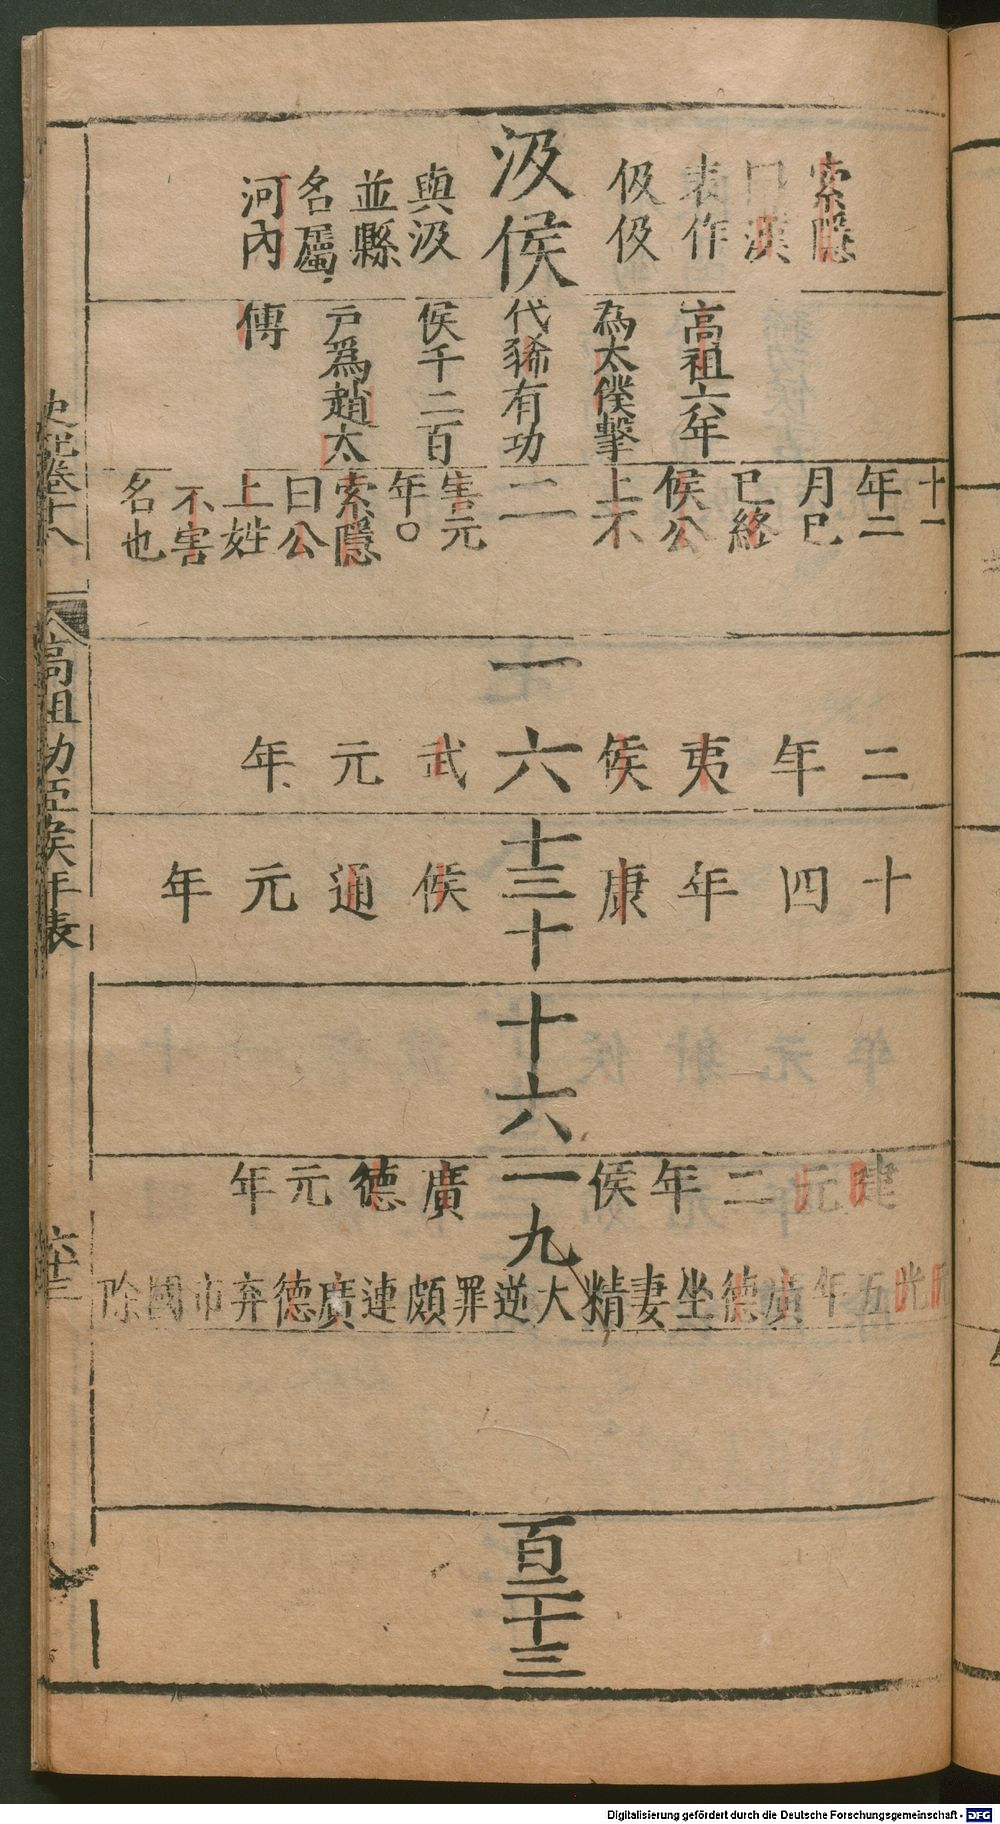 索隱
曰漢
表作
伋伋
汲侯
與汲
並縣
名屬
河內
高祖六年
為太僕擊
代豨有功
侯千二百
戶爲趙太
傅
十一
年二
月巳
巳終
侯公
上不
二
害元
年○
索隱
曰公
上姓
不害
名也
一
二年夷侯
六
武元年
十四年康
十三
十
侯通元年
十六
建元二年侯
一
廣德元年
九
光五年廣德坐妻精大逆罪頗連廣德弃市國除
百二十三
史記卷十八
高祖功臣侯年表
六十三
Digitalisierung gefördert durch die Deutsche Forschungsgemeinschaft - DFG